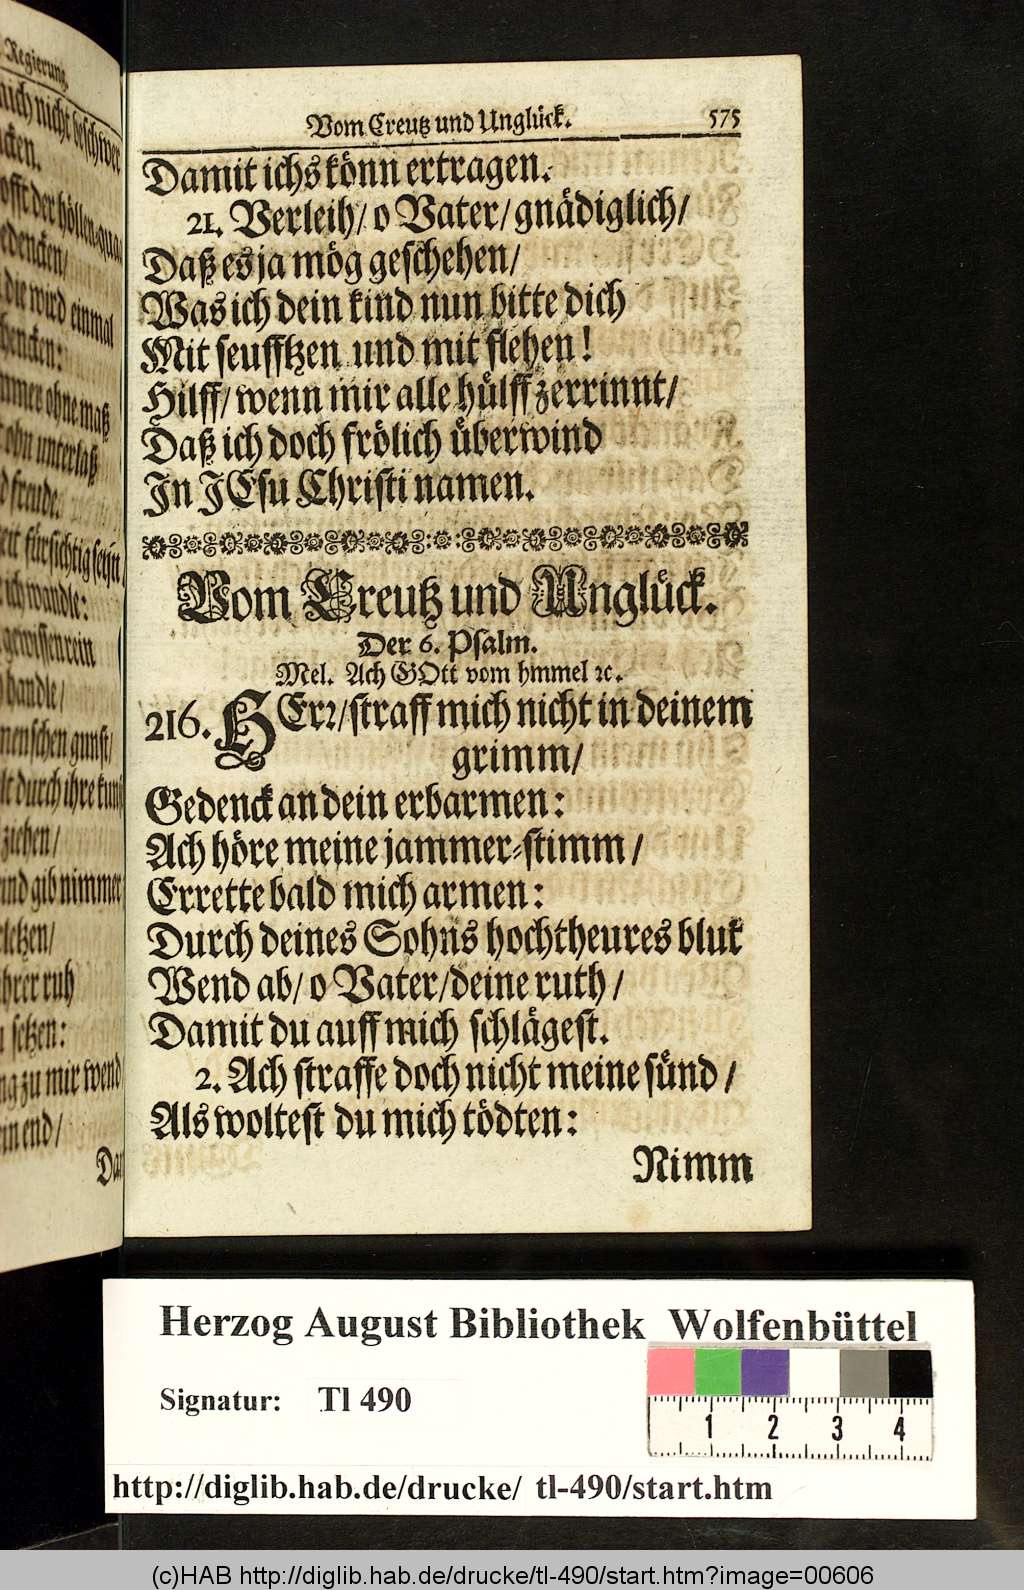 Regierung.
nicht beschwer
cken.
offt der höllen-qua-
edencken/
die wird einmal
hencken:
ohne maß
ohn unterlaß
freude.
fürsichtig seyn
ich wandle:
gewissen rein
handle/
menschen gunst/
durch ihre kunst
ziehen/
und gib nimmer
letzen/
ihrer ruh
setzen:
zu mir wend
mein end/
Dar
Vom Creutz und Unglück. 575
Damit ichs könn ertragen.
21. Verleih/ o Vater/ gnädiglich/
Daß es ja mög geschehen/
Was ich dein kind nun bitte dich
Mit seufftzen und mit flehen!
Hilff/ wenn mir alle hülff zerrinnt/
Daß ich doch frölich überwind
In JEsu Christi namen.
Vom Creutz und Unglück.
Der 6. Psalm.
Mel. Ach GOtt vom hmmel ꝛc.
216. HErꝛ/ straff mich nicht in deinem
grimm/
Gedenck an dein erbarmen:
Ach höre meine jammer-stimm/
Errette bald mich armen:
Durch deines Sohns hochtheures blut
Wend ab/ o Vater/ deine ruth/
Damit du auff mich schlägest.
2. Ach straffe doch nicht meine sünd/
Als woltest du mich tödten:
Nimm
Herzog August Bibliothek Wolfenbüttel
Signatur: Tl 490
1 2 3 4
http://diglib.hab.de/drucke/ tl-490/start.htm
(c)HAB http://diglib.hab.de/drucke/tl-490/start.htm?image=00606